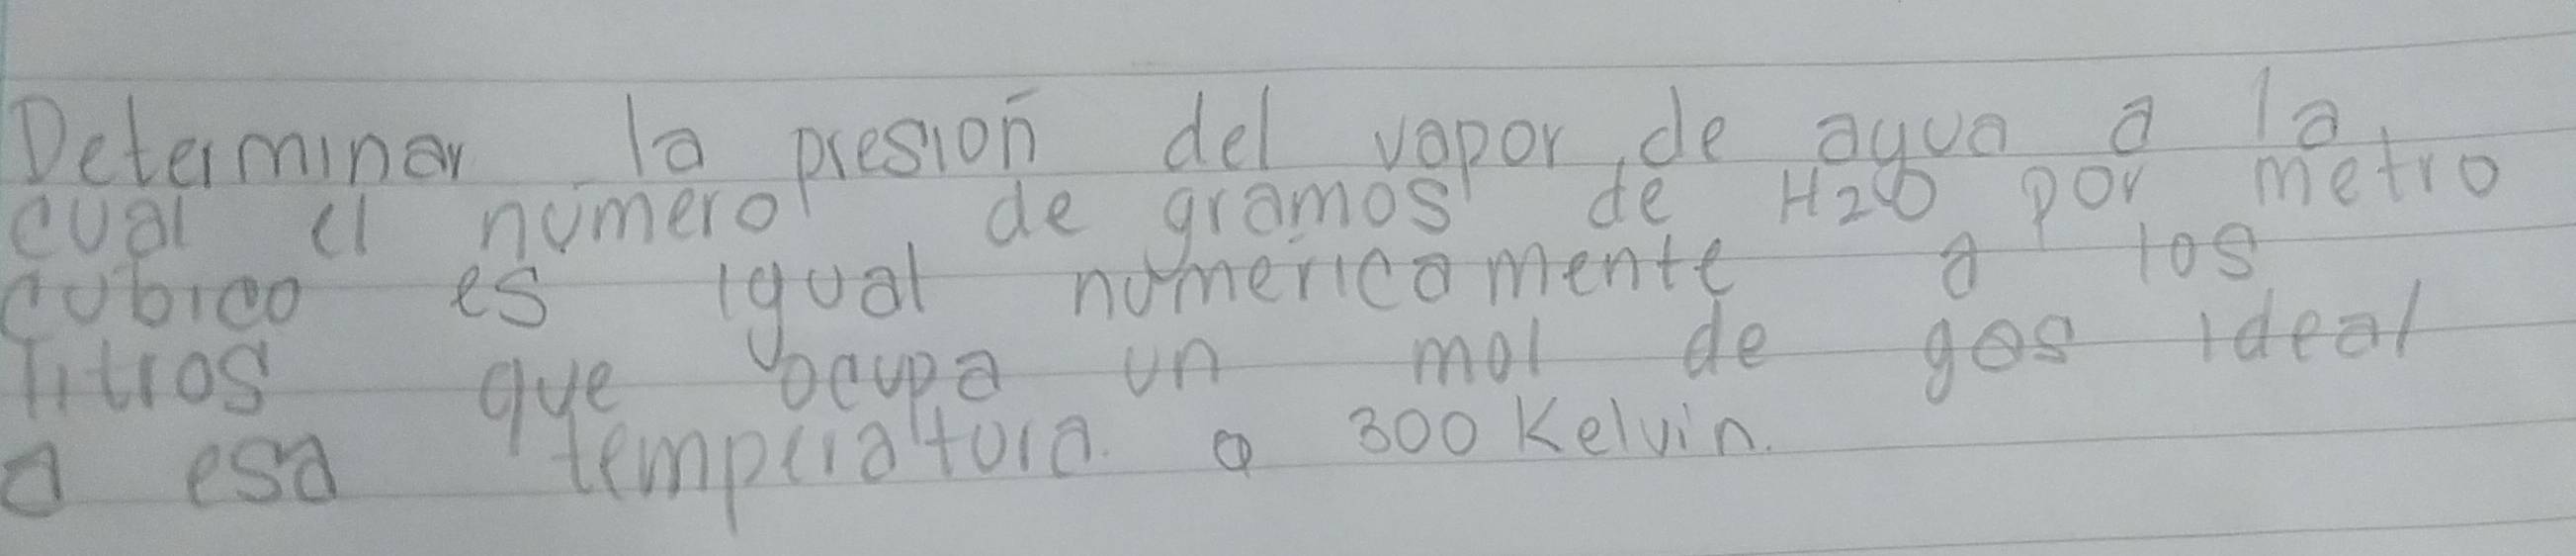 Determinar la presión del vapor de agua a la
cual el número de gramos de H2O por metro
cubico es igual numéricamente a los
litros que ocupa un mol de gas ideal
a esa temperatura. a 300 Kelvin.